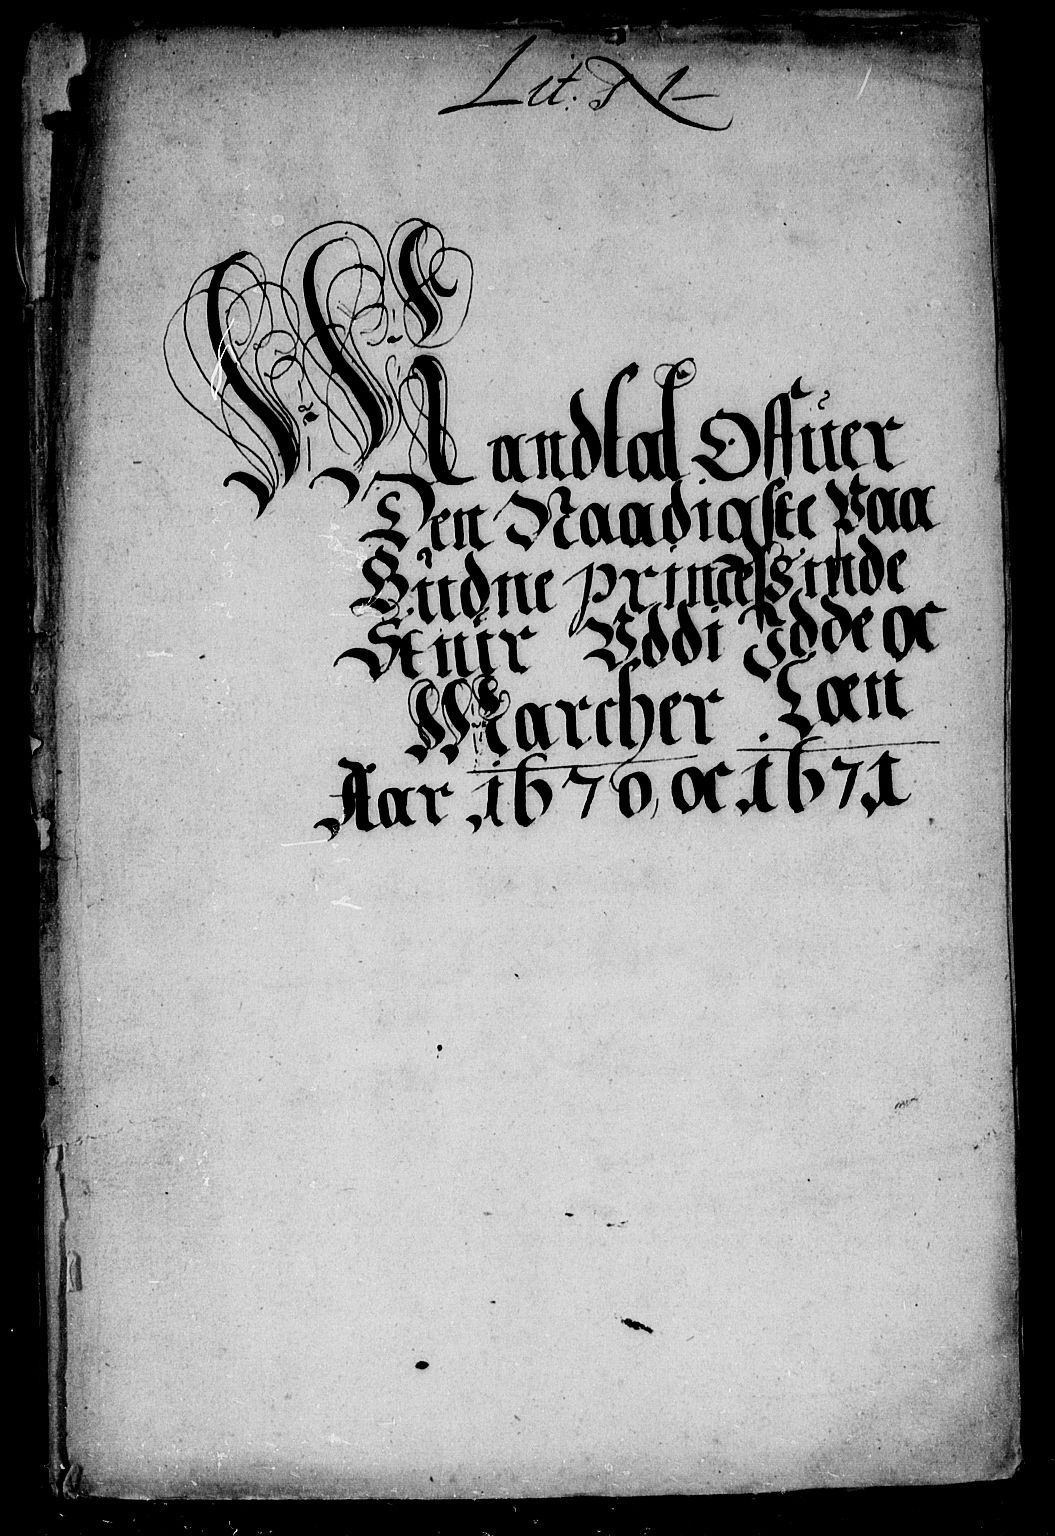 Lit. N 1
Mandtal Offuer
Den Naadigste Paa
Büdne princessinde
Stüir Vddi Idde oc
Marcher Læn
Aar .1670, oc .1671